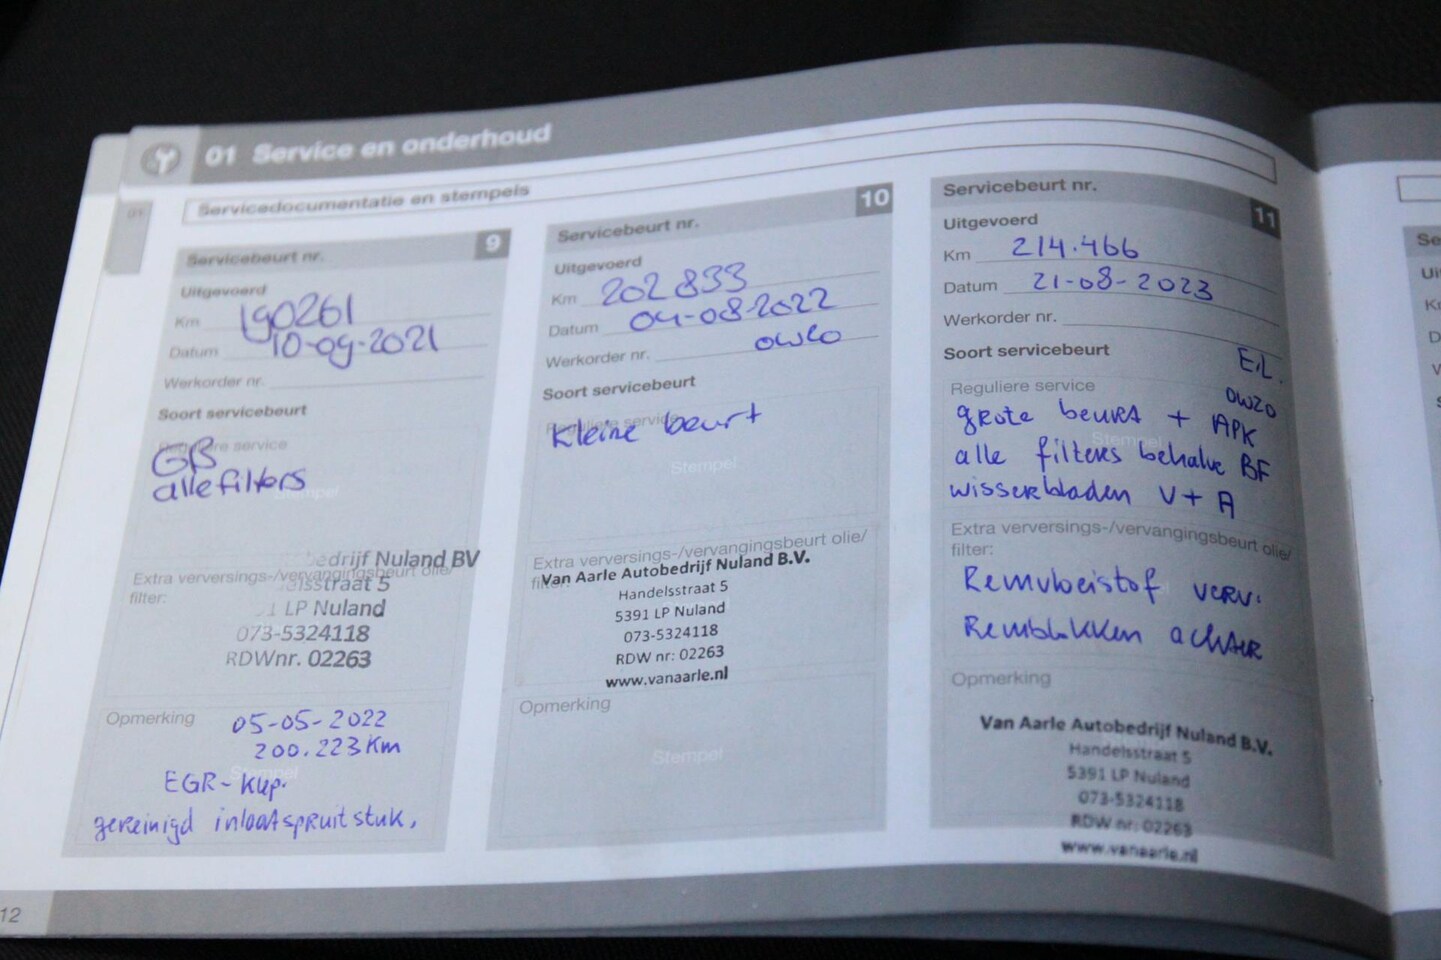 01 Service en onderhoud
Servicedocumentatie en stempels
01
Servicebeurt nr. 9
Uitgevoerd
Km 190261
Datum 10-09-2021
Werkorder nr.
Soort servicebeurt
Reguliere service
GB
alle filters
Stempel
Extra verversings-/vervangingsbeurt olie/
filter:
edrijf Nuland BV
elsstraat 5
1 LP Nuland
073-5324118
RDWnr. 02263
Opmerking
05-05-2022
200.223 Km
Stempel
EGR-klep.
gereinigd inlaatspruitstuk.
Servicebeurt nr. 10
Uitgevoerd
Km 202833
Datum 04-08-2022
Werkorder nr. OW20
Soort servicebeurt
Reguliere service
Kleine beurt
Stempel
Extra verversings-/vervangingsbeurt olie/
filter:
Van Aarle Autobedrijf Nuland B.V.
Handelsstraat 5
5391 LP Nuland
073-5324118
RDW nr: 02263
www.vanaarle.nl
Opmerking
Stempel
Servicebeurt nr. 11
Uitgevoerd
Km 214.466
Datum 21-08-2023
Werkorder nr.
Soort servicebeurt
E.L.
Reguliere service
OW20
grote beurt + APK
Stempel
alle filters behalve BF
wisserbladen V + A
Extra verversings-/vervangingsbeurt olie/
filter:
Remvloeistof verv.
Remblokken achter
Opmerking
Van Aarle Autobedrijf Nuland B.V.
Handelsstraat 5
5391 LP Nuland
073-5324118
RDW nr: 02263
www.vanaarle.nl
12